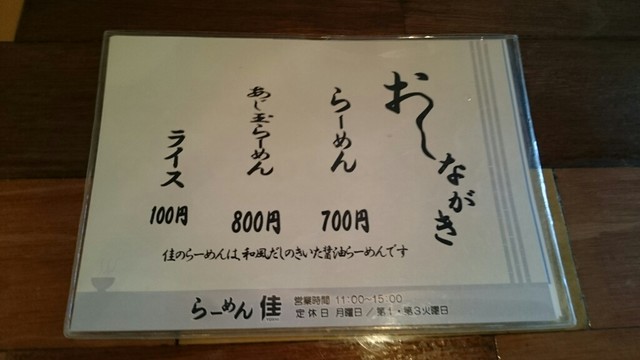 おしながき
らーめん 700円
あじ玉らーめん 800円
ライス 100円
佳のらーめんは、和風だしのきいた醤油らーめんです
らーめん 佳
営業時間 11:00~15:00
定休日 月曜日/第1・第3火曜日